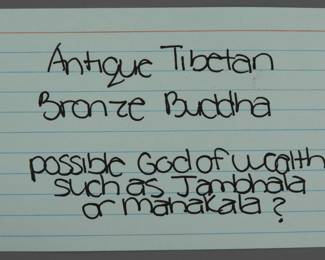 Antique Tibetan
Bronze Buddha
possible God of wealth
such as Jambhala
or mahakala?